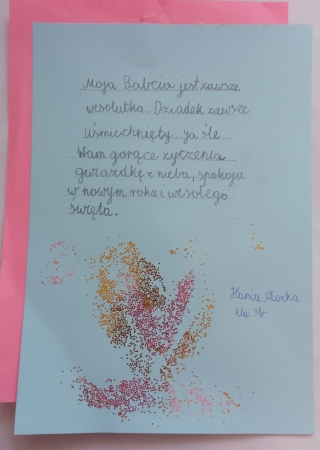 Moja Babcia jest zawsze
wesolutka. Dziadek zawsze
uśmiechnięty. Ja śle
Wam gorące życzenia
gwiazdkę z nieba, spokoju
w nowym roku i wesołego
święta.
Hania
kla 3b